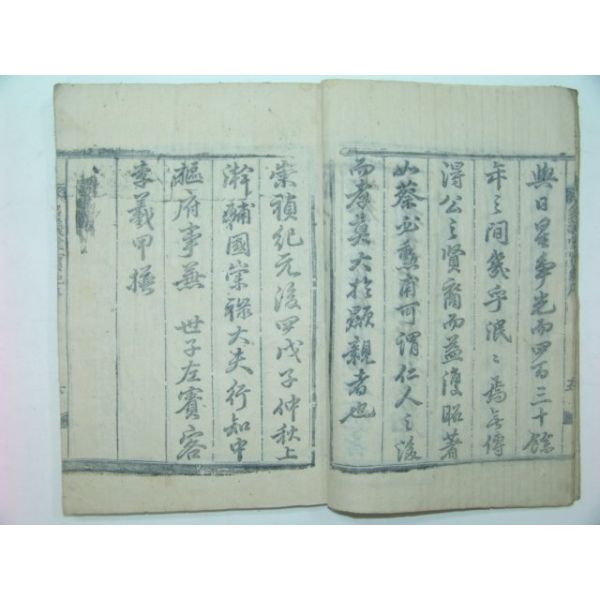 與日星爭光而四百三十餘
年之間幾乎泯〻焉無傳
得公之賢裔而益復昭著
如蔡甫可謂仁人之後
而孝莫大於顯親者也
崇禎紀元後四戊子仲秋上
澣輔國崇祿大夫行知中
樞府事兼 世子左賓客
李羲甲撰